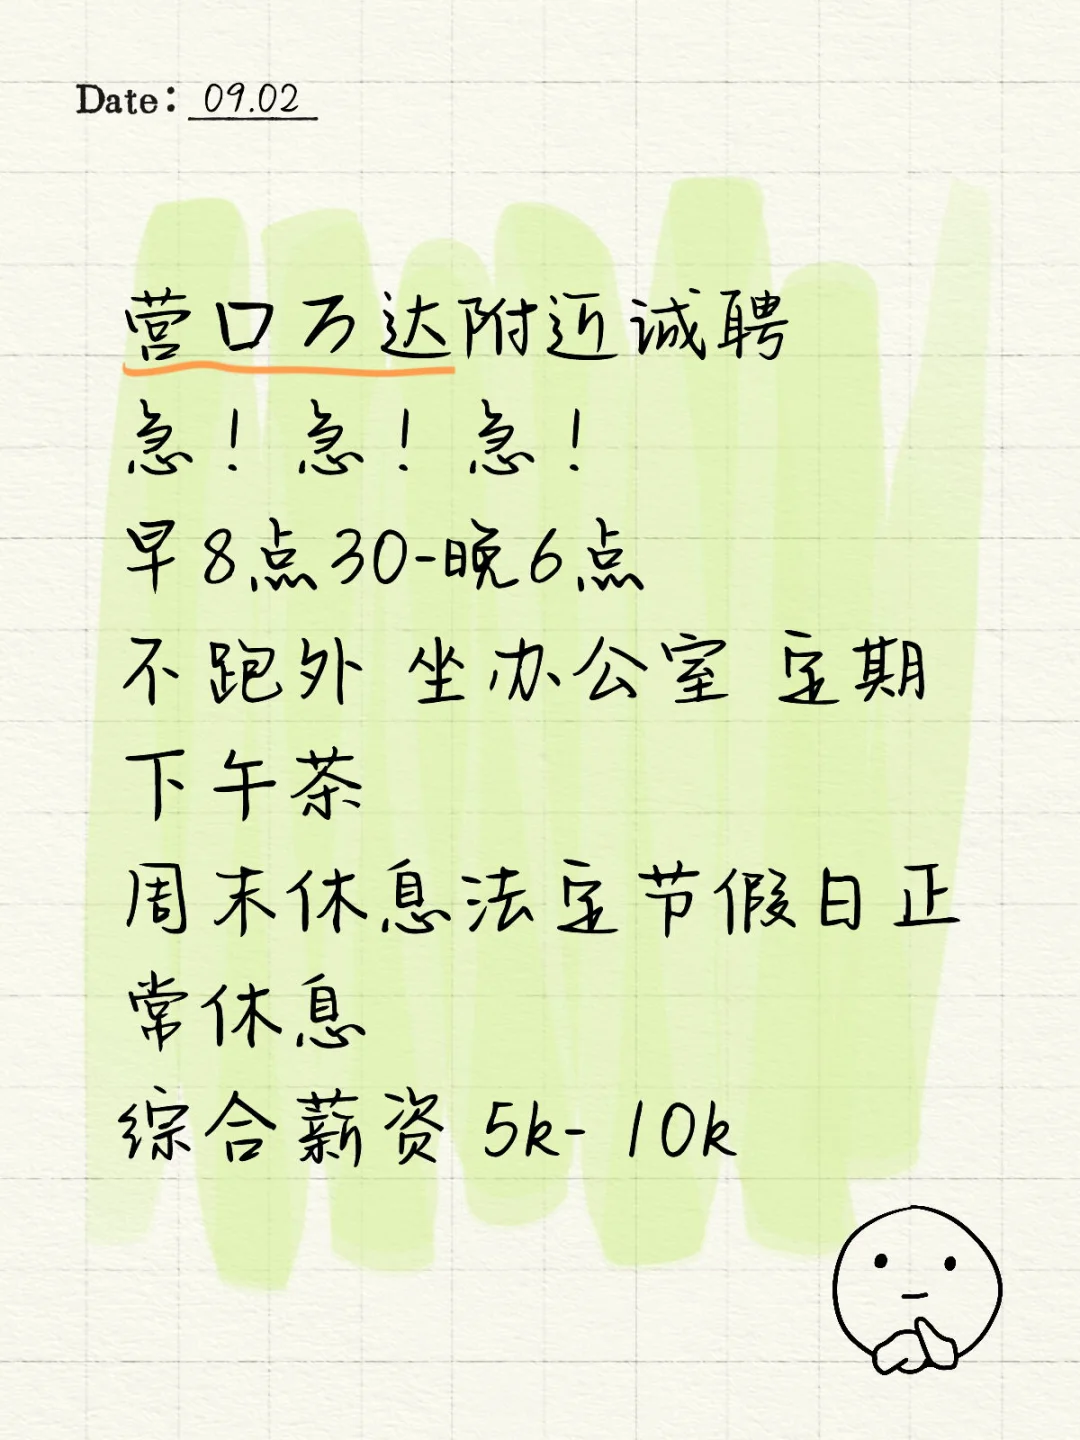 Date: 09.02
营口万达附近诚聘
急！急！急！
早8点30-晚6点
不跑外 坐办公室 定期
下午茶
周末休息法定节假日正
常休息
综合薪资 5k- 10k